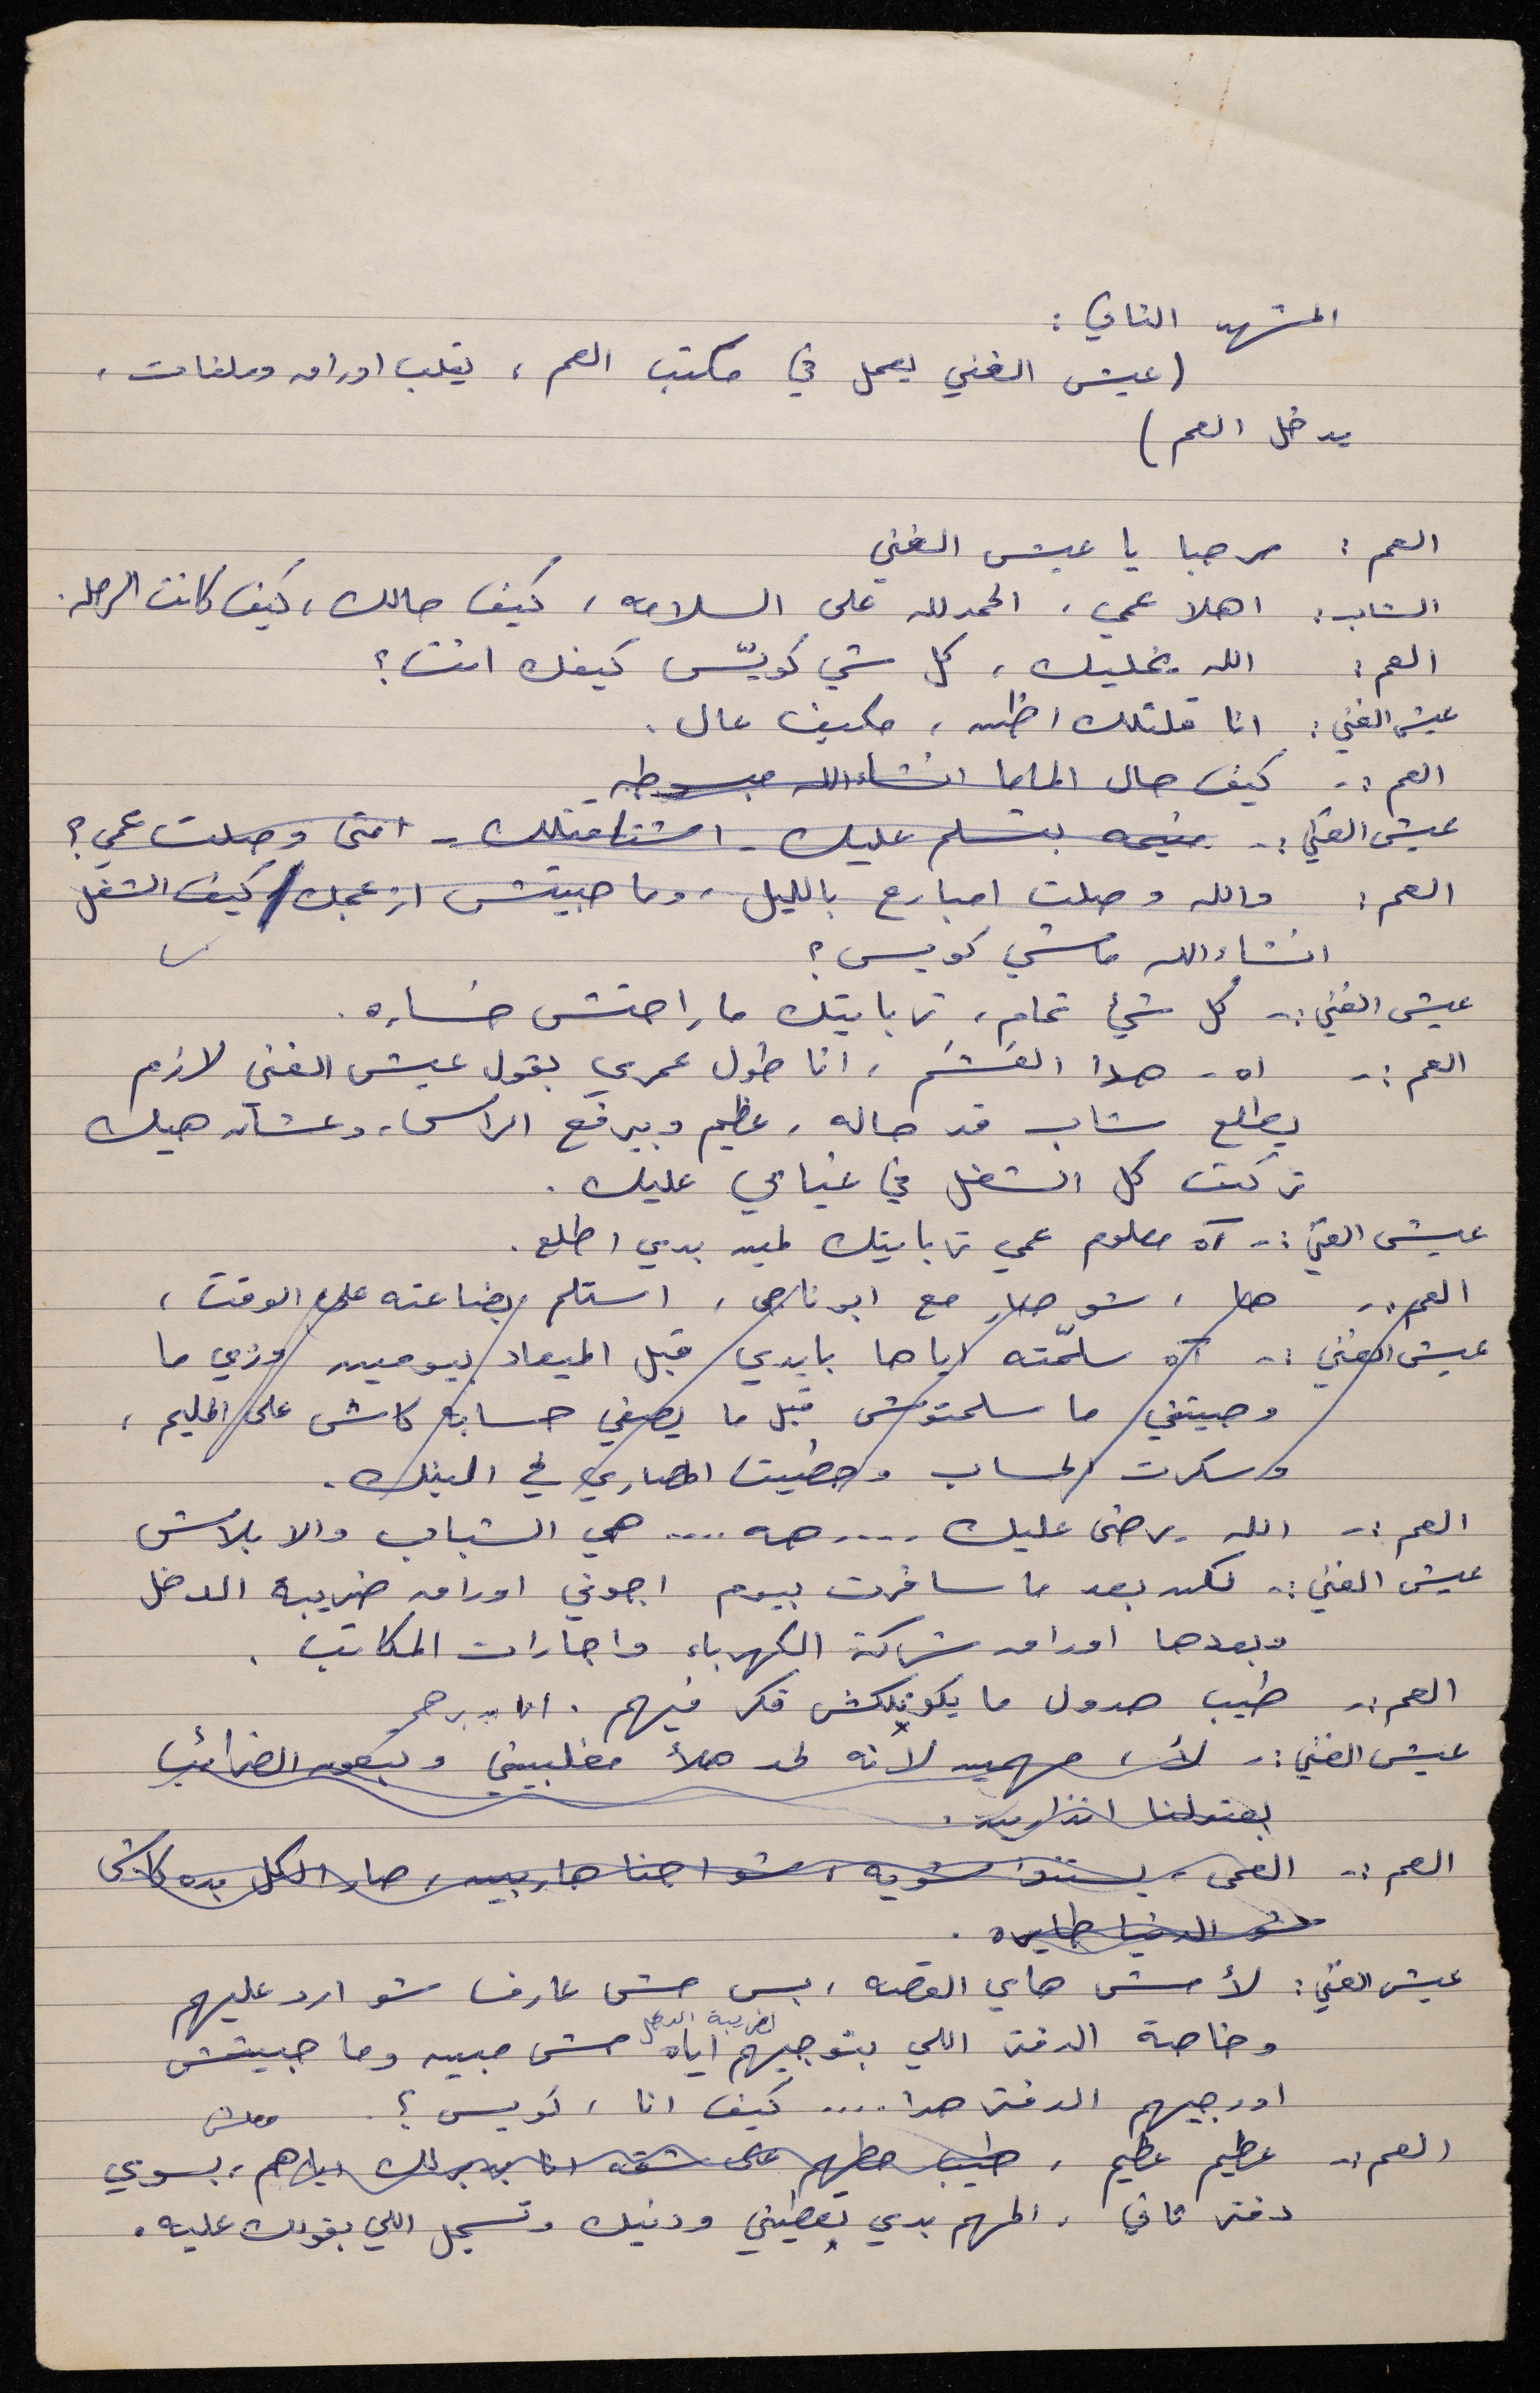 المشهد الثاني :
(عيش الغني يعمل في مكتب العم ، يقلب اوراق وملفات ،
يدخل العم )
العم : مرحبا يا عيش الغني
الشاب : اهلا عمي ، الحمدلله على السلامه ، كيف حالك ، كيف كانت الرحله .
العم : الله يخليك ، كل شي كويّس كيفك انت ؟
عيش الغني : انا قلتلك اظن ، مكيف عال .
العم :- كيف حال الماما انشاءالله مبسوطه
عيش الغني :- منيحه بتسلم عليك - اشتاقتلك - امتى وصلت عمي ؟
العم : والله وصلت امبارح بالليل ، وما حبيتش ازعجك / كيف الشغل
انشاءالله ماشي كويس ؟
عيش الغني :- كل شيْ تمام ، تربايتك ما راحتش خساره .
العم :- اه - هذا العَشَم ، انا طول عمري بقول عيش الغني لازم
يطلع شاب قد حاله ، عظيم وبيرفع الراس ، وعشان هيك
تركت كل الشغل في غيابي عليك .
عيش الغني :- آه معلوم عمي تربايتك لمين بدي اطلع .
العم :- هلا ، شو صار مع ابو ناجي ، استلم بضاعته على الوقت ،
عيش الغني :- آه سلمّته اياها بايدي قبل الميعاد بيومين وزي ما
وصيتني ما سلمتوش قبل ما يصفي حسابه كاش على المليم ،
وسكرت الحساب وحطيت المصاري في البنك .
العم :- الله يرضى عليك .... هه .... هي الشباب والا بلاش
عيش الغني :- لكن بعد ما سافرت بيوم اجوني اوراق ضريبة الدخل
وبعدها اوراق شركة الكهرباء واجارات المكاتب .
العم :- طيب هدول ما يكونلكش فكر فيهم . انا بدبرهم
عيش الغني :- لأ ، مهمين لأنه لحد هلأ مغلبيني وبتعون الضرائب
بعتولنا انذارين .
العم :- العمى ، يستنوا شويه ، شو احنا هاربين ، صار الكل بده كاش
شو الدنيا طايره .
عيش الغني : لأ مش هاي القصه ، بس مش عارف شو ارد عليهم
لضريبة الدخل
وخاصة الدفتر اللي بتوجيهم اياه مش مبين وما حبيتش
اورجيهم الدفتر هدا .... كيف انا ، كويس ؟ معلش
العم :- عظيم عظيم ، طيب حطهم على شقه انا بدبرلك اياهم ، بسوي
دفتر ثاني ، المهم بدي تعطيني ودنيك وتسجل اللي بقولك عليه .